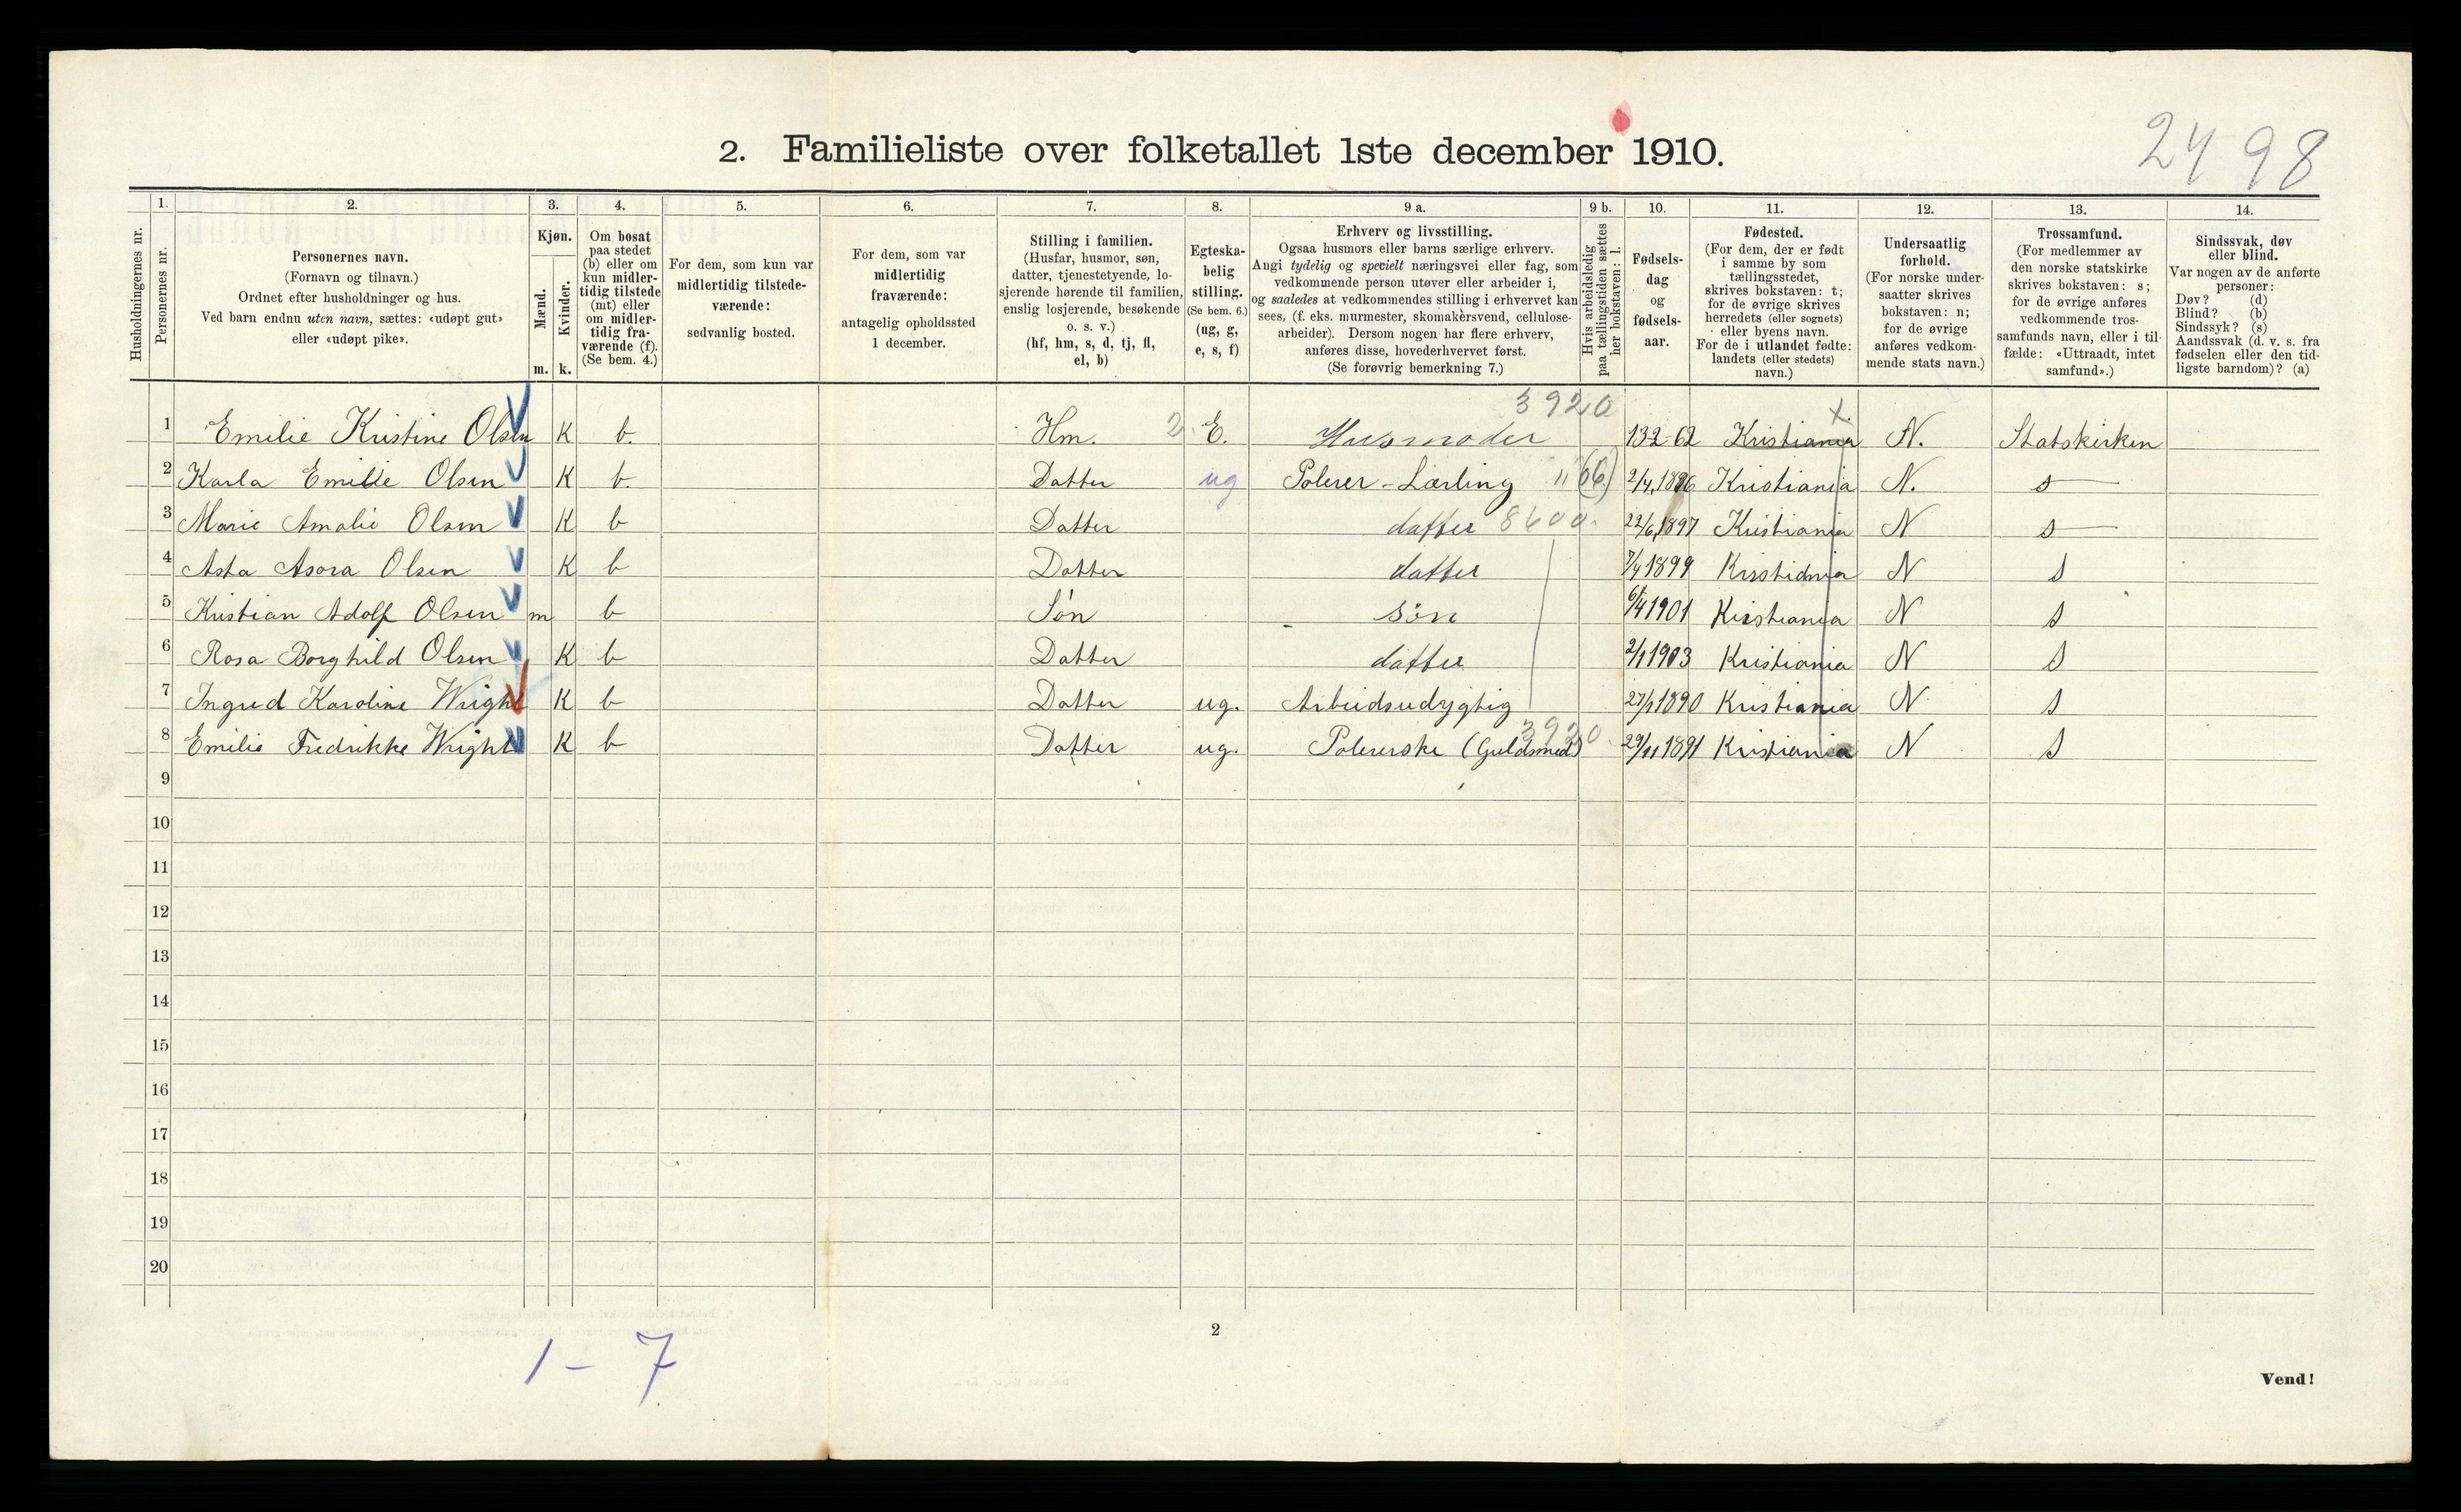 2498
2. Familieliste over folketallet 1ste december 1910.
Husholdningernes nr.
1. Personernes nr.
2. Personernes navn.
(Fornavn og tilnavn.)
Ordnet efter husholdninger og hus.
Ved barn endnu uten navn, sættes: «udøpt gut»
eller «udøpt pike».
3. Kjøn.
Mænd. m.
Kvinder. k.
4. Om bosat
paa stedet
(b) eller om
kun midler-
tidig tilstede
(mt) eller
om midler-
tidig fra-
værende (f).
(Se bem. 4.)
5. For dem, som kun var
midlertidig tilstede-
værende:
sedvanlig bosted.
6. For dem, som var
midlertidig
fraværende:
antagelig opholdssted
1 december.
7. Stilling i familien.
(Husfar, husmor, søn,
datter, tjenestetyende, lo-
sjerende hørende til familien,
enslig losjerende, besøkende
o. s. v.)
(hf, hm, s, d, tj, fl,
el, b)
8. Egteska-
belig
stilling.
(Se bem. 6.)
(ug, g,
e, s, f)
9 a. Erhverv og livsstilling.
Ogsaa husmors eller barns særlige erhverv.
Angi tydelig og specielt næringsvei eller fag, som
vedkommende person utøver eller arbeider i,
og saaledes at vedkommendes stilling i erhvervet kan
sees, (f. eks. murmester, skomakersvend, cellulose-
arbeider). Dersom nogen har flere erhverv,
anføres disse, hovederhvervet først.
(Se forøvrig bemerkning 7.)
9 b. Hvis arbeidsledig
paa tællingstiden sættes
her bokstaven: l.
10. Fødsels-
dag
og
fødsels-
aar.
11. Fødested.
(For dem, der er født
i samme by som
tællingsstedet,
skrives bokstaven: t;
for de øvrige skrives
herredets (eller sognets)
eller byens navn.
For de i utlandet fødte:
landets (eller stedets)
navn.)
12. Undersaatlig
forhold.
(For norske under-
saatter skrives
bokstaven: n;
for de øvrige
anføres vedkom-
mende stats navn.)
13. Trossamfund.
(For medlemmer av
den norske statskirke
skrives bokstaven: s;
for de øvrige anføres
vedkommende tros-
samfunds navn, eller i til-
fælde: «Uttraadt, intet
samfund».)
14. Sindssvak, døv
eller blind.
Var nogen av de anførte
personer:
Døv? (d)
Blind? (b)
Sindssyk? (s)
Aandssvak (d. v. s. fra
fødselen eller den tid-
ligste barndom)? (a)
3920
1 Emilie Kristine Olsen K b. Hm. 2 E. Husmoder 132-62 Kristiania N. Statskirken
2 Karla Emilie Olsen K b. Datter ug Polerer-Lærling 11(66) 2/4,1896 Kristiania N. s
3 Marie Amalie Olsen K b Datter datter 8600 22/6,1897 Kristiania N s
4 Asta Asora Olsen K b Datter datter 7/4 1899 Kristiania N s
5 Kristian Adolf Olsen m b Søn søn 6/4 1901 Kristiania N s
6 Rosa Borghild Olsen K b Datter datter 2/1 1903 Kristiania N s
7 Ingrid Karoline Wright K b Datter ug. Arbeidsudygtig 27/1 1890 Kristiania N s
3920
8 Emilie Fredrikke Wright K b Datter ug. Polererske (Guldsmed) 29/11 1891 Kristiania N s
9
10
11
12
13
14
15
16
17
18
19
20
2
1-7
Vend!